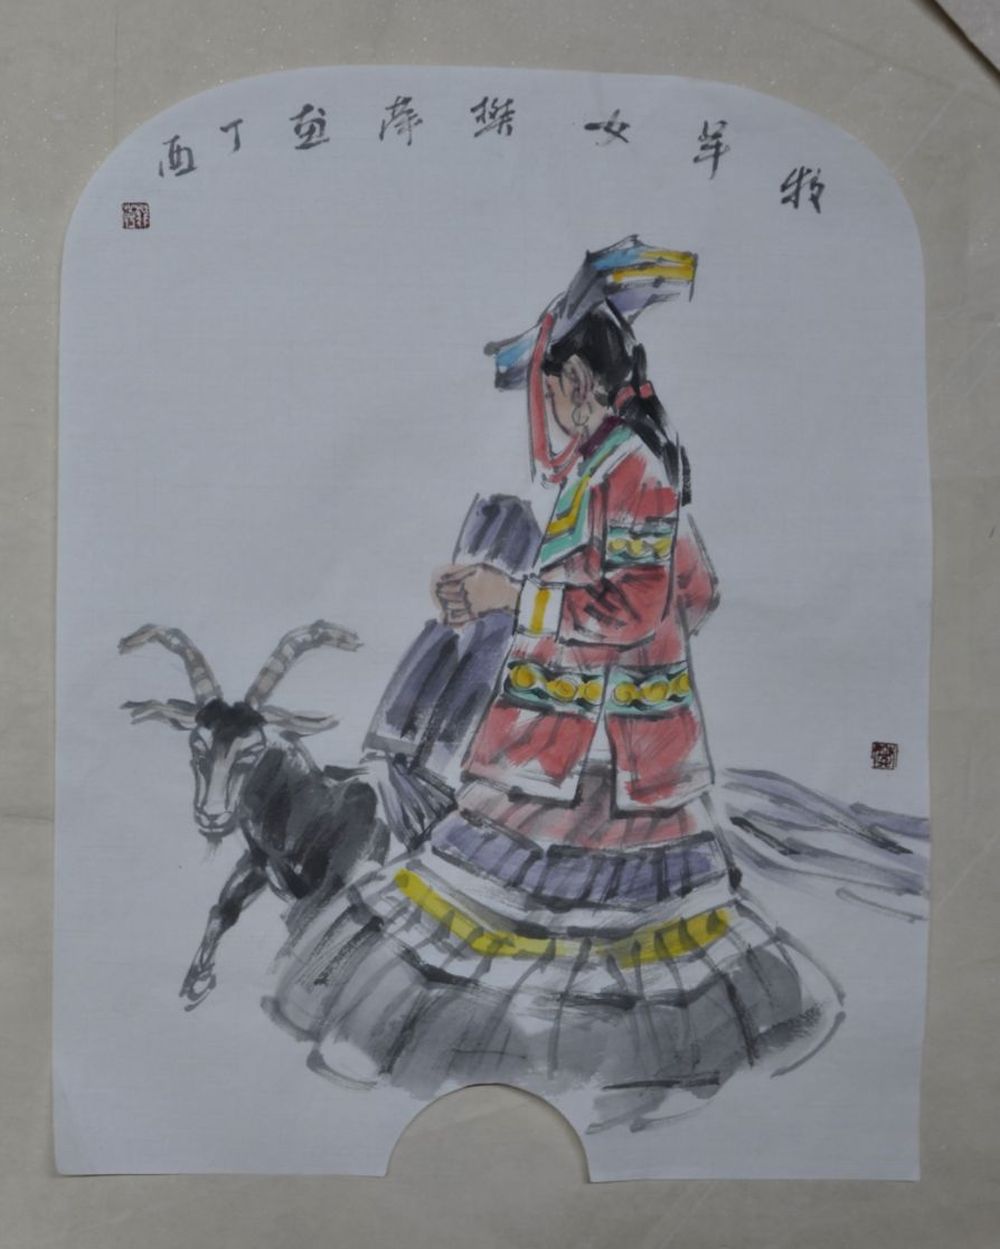 牧羊女樊萍画丁酉